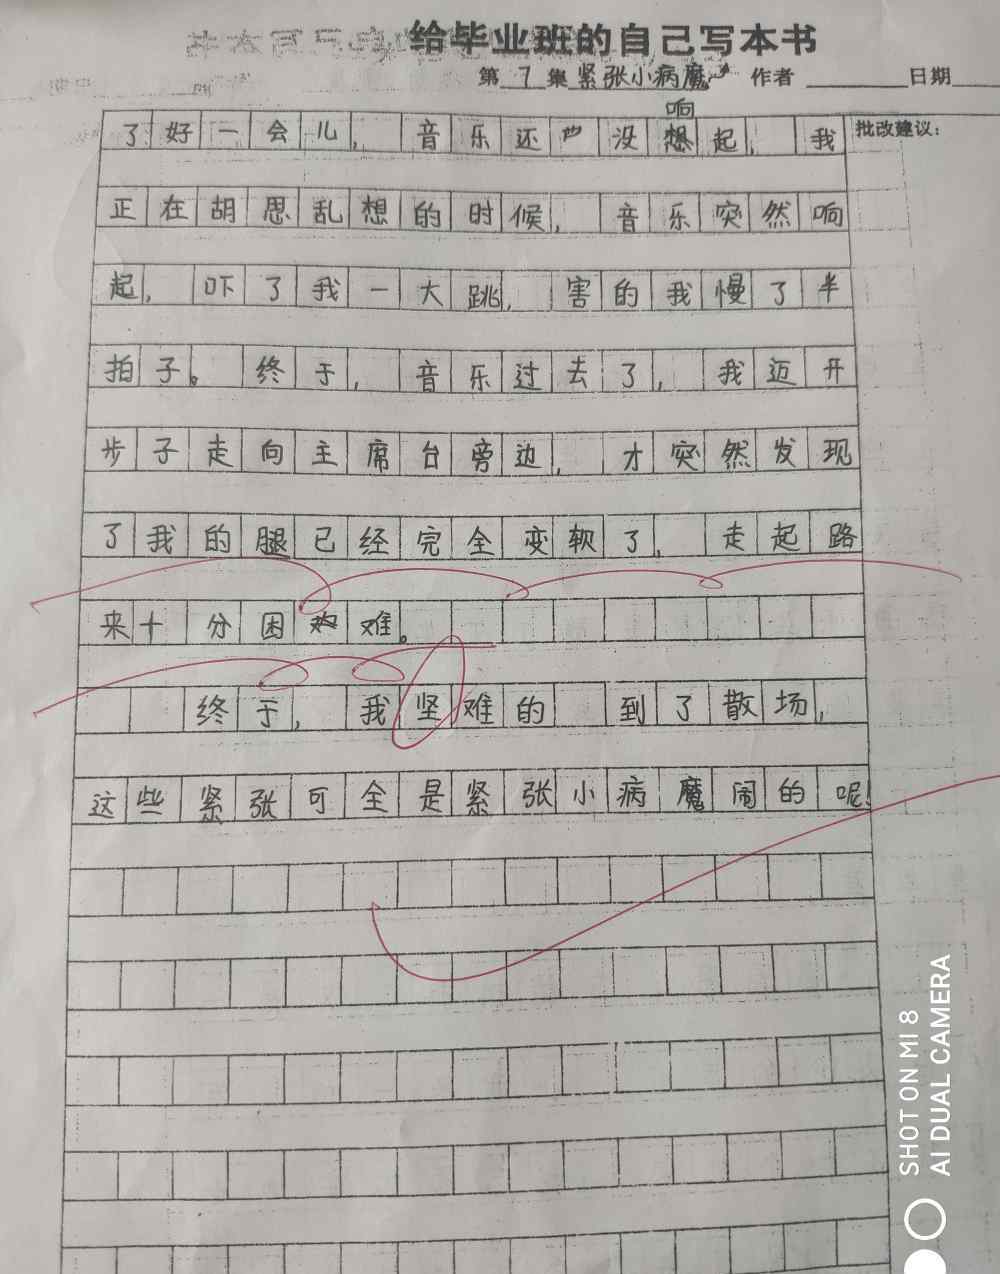 给毕业班的自己写本书
第 7 集 紧张小病魔 作者 日期
批改建议：
响
了好一会儿，音乐还没想起，我
正在胡思乱想的时候，音乐突然响
起，吓了我一大跳，害的我慢了半
拍子。终于，音乐过去了，我迈开
步子走向主席台旁边，才突然发现
了我的腿已经完全变软了，走起路
来十分困难。
终于，我坚难的到了散场，
这些紧张可全是紧张小病魔闹的呢！
SHOT ON MI 8
AI DUAL CAMERA